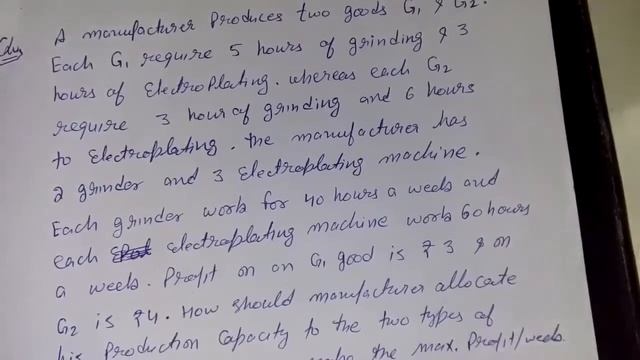 Qus
A manufacturer Produces two goods G1 & G2.
Each G1 require 5 hours of grinding & 3
hours of Electroplating. whereas each G2
require 3 hour of grinding and 6 hours
to Electroplating. the manufacturer has
2 grinder and 3 Electroplating machine.
Each grinder work for 40 hours a week and
each electroplating machine work 60 hours
a week. Profit on an G1 good is ₹3 & on
G2 is ₹4. How should manufacturer allocate
his Production Capacity to the two types of
the max. Profit/week.